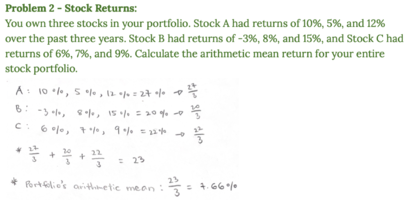 Problem 2 - Stock Returns:
You own three stocks in your portfolio. Stock A had returns of 10%, 5%, and 12%
over the past three years. Stock B had returns of -3%, 8%, and 15%, and Stock C had
returns of 6%, 7%, and 9%. Calculate the arithmetic mean return for your entire
stock portfolio.
A: 10 %, 5 %, 12 % = 27 % → 27/3
B: -3 %, 8 %, 15 % = 20 % → 20/3
C: 6 %, 7 %, 9 % = 22 % → 22/3
* 27/3 + 20/3 + 22/3 = 23
* Portfolio's arithmetic mean: 23/3 = 7.66 %